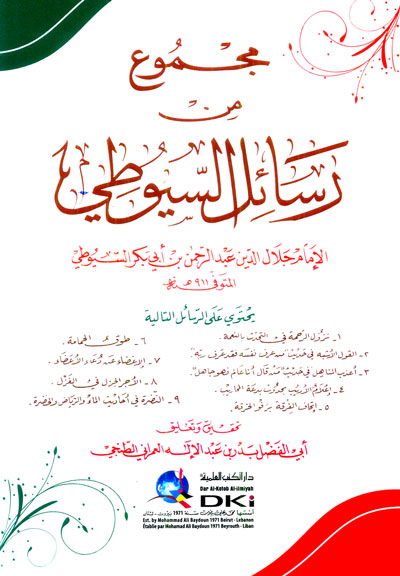 مجموع
من
رسائل السيوطي
الإمام جلال الدين عبد الرحمن بن أبي بكر السيوطي
المتوفى ٩١١ هـ
يحتوي على الرسائل التالية
١- نزول الرحمة في التحدث بالنعمة.
٢- القول الأشبه في حديث "من عرف نفسه فقد عرف ربه".
٣- أعذب المناهل في حديث "من قال أنا عالم فهو جاهل".
٤- إعلام الأريب بحدوث بدعة المحاريب.
٥- إتحاف الفرقة برفو الخرقة.
٦- طوق الحمامة.
٧- الإغضاء عند دعاء الأعضاء.
٨- الأجر الجزل في الغزل.
٩- النضرة في أحاديث الماء والرياض والخضرة.
تحقيق وتعليق
أبي الفضل بدر بن عبد الإله العمراني الطنجي
دار الكتب العلمية
Dar Al-Kotob Al-ilmiyah
DKi
أسسها محمد علي بيضون سنة 1971 بيروت - لبنان
Est. by Mohammad Ali Baydoun 1971 Beirut - Lebanon
Établie par Mohamad Ali Baydoun 1971 Beyrouth - Liban